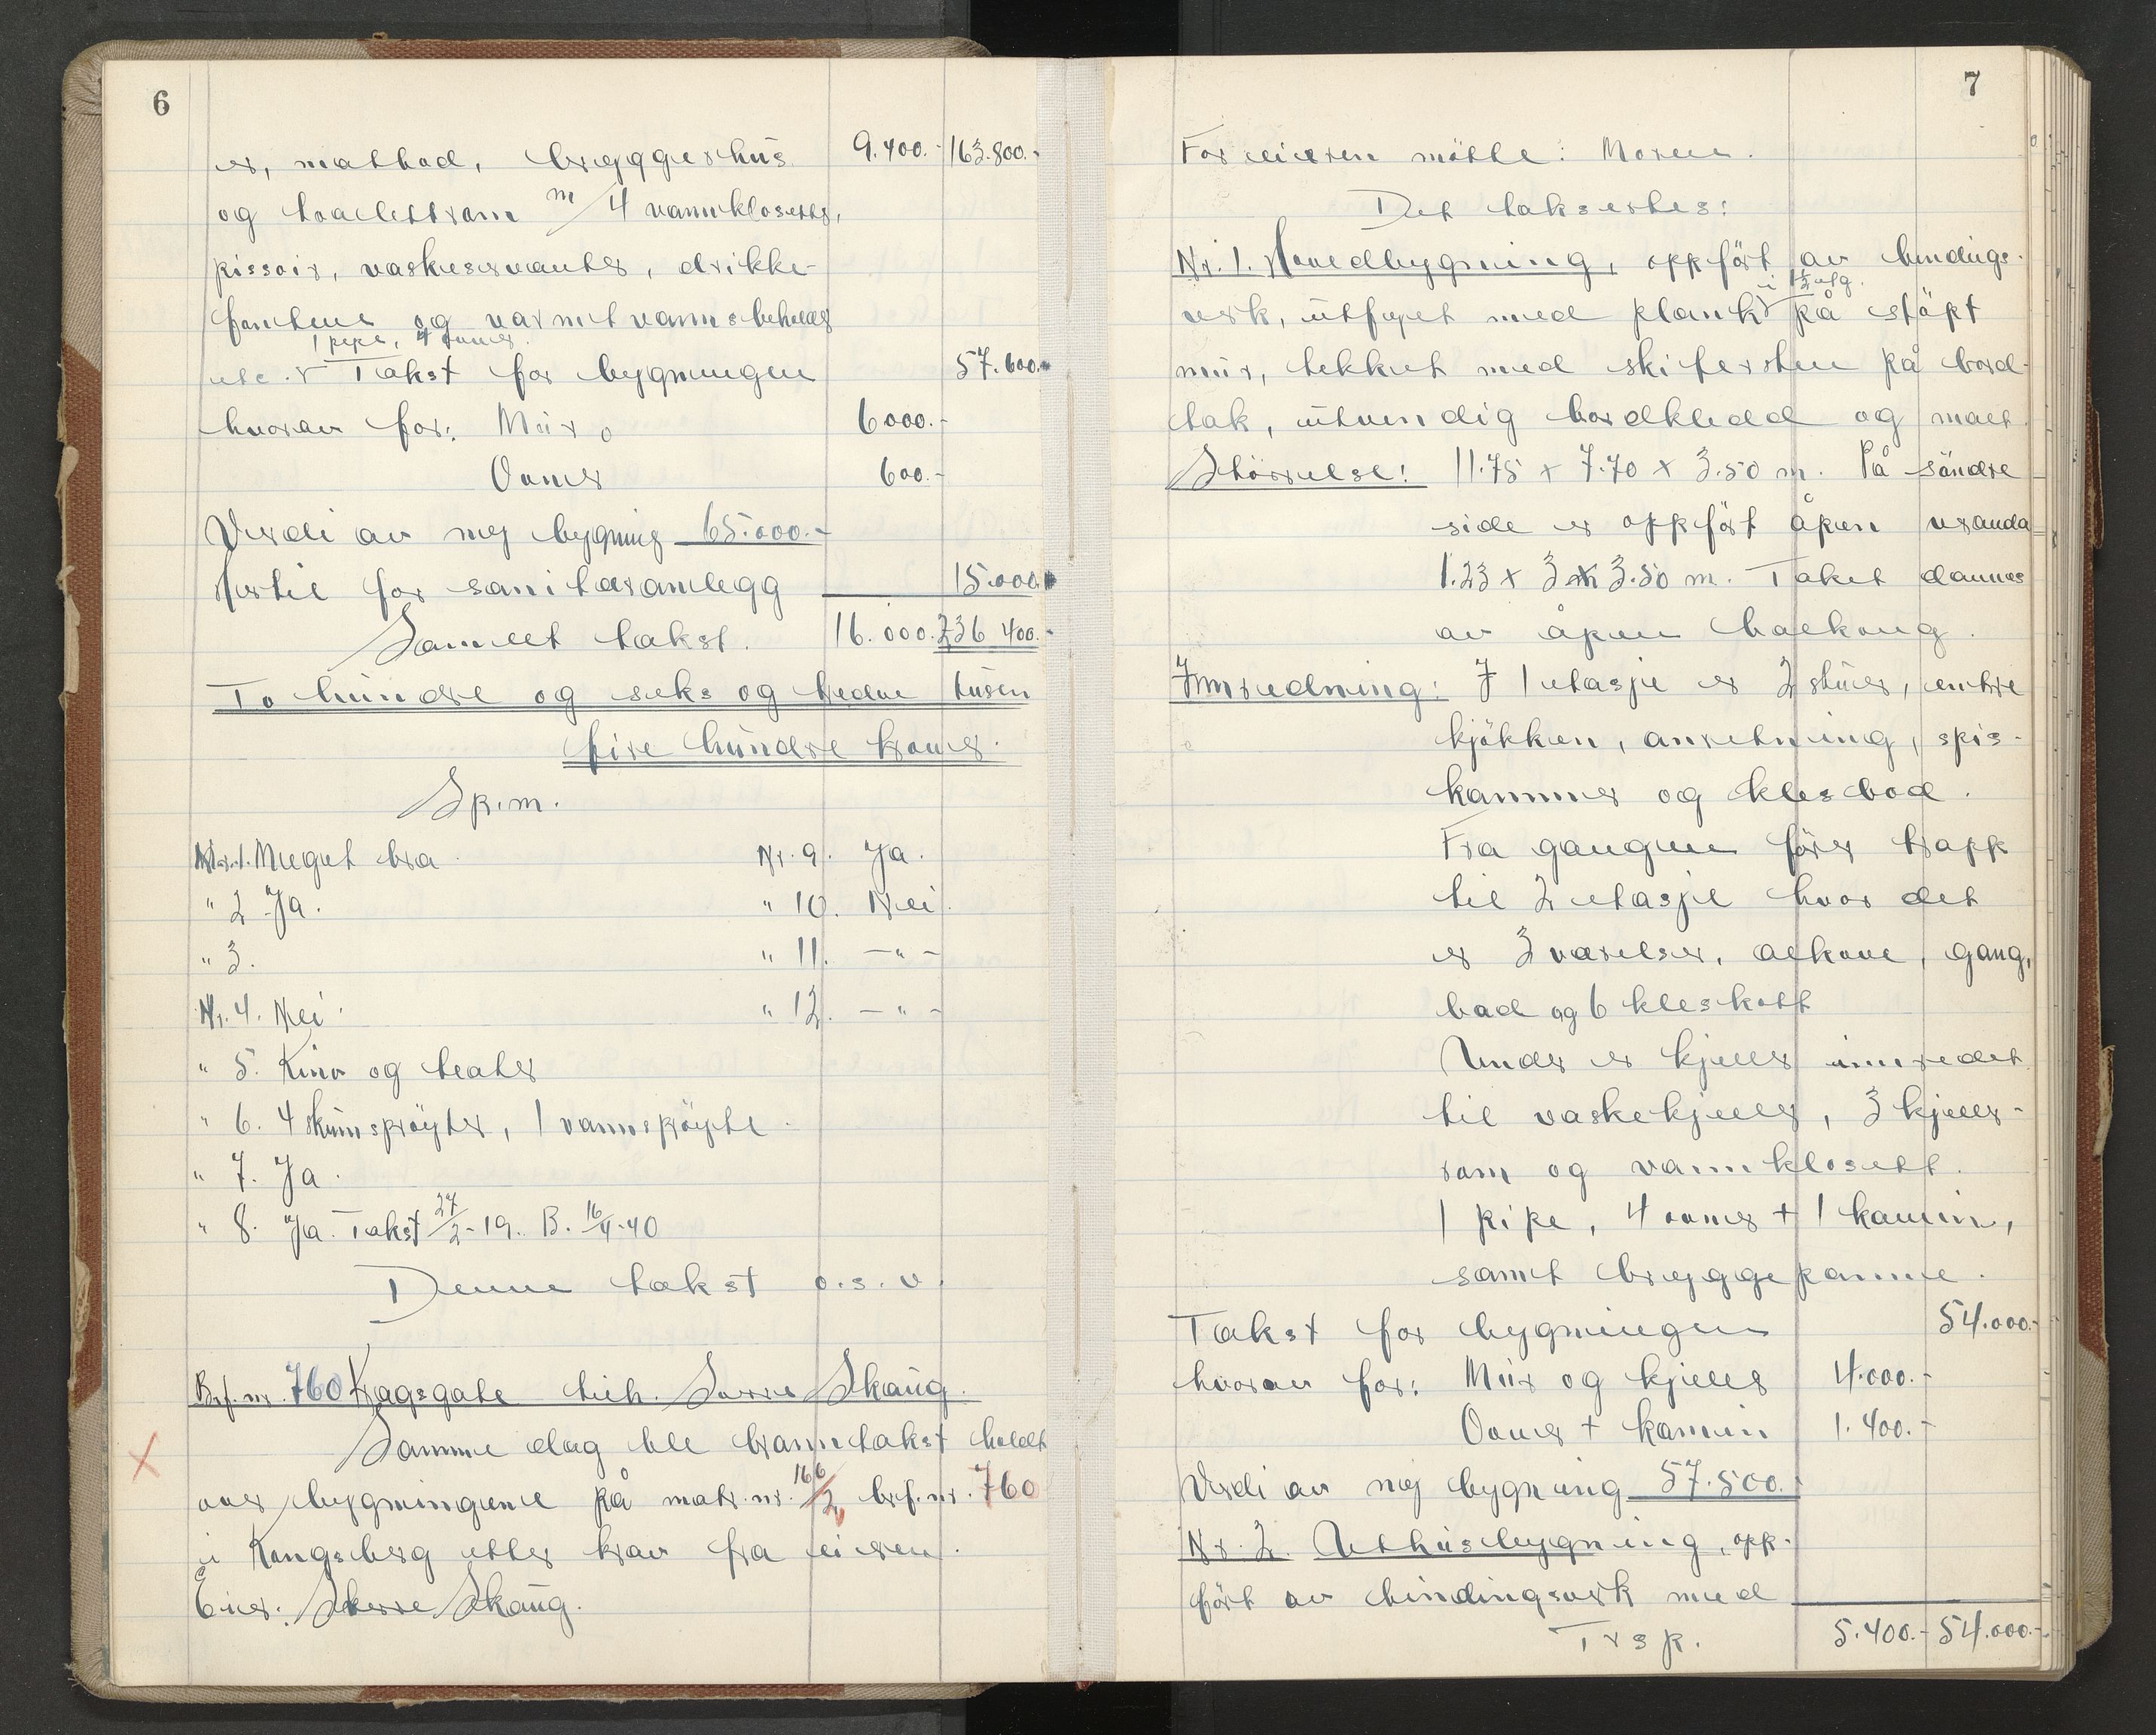 6
er, matbod, bryggerhus 9.400.- 163.800.-
og toalettrom m/4 vannklosetter,
pissoir, vaskeservanter, drikke-
fontene og varmtvannsbeholder
1 pipe, 4 ovner.
etc. Takst for bygningen 57.600.-
hvorav for: Mur 6000.-
Ovner 600.-
Verdi av ny bygning 65.000.-
Hertil for sanitæranlegg 15.000.-
Samlet takst. 16.000. 236 400.-
To hundre og seks og tredve tusen
fire hundre kroner.
Sp.m.
Nr. 1. Meget bra. Nr. 9. Ja.
" 2 Ja. " 10. Nei.
" 3. " 11. -"-
Nr. 4. Nei. " 12. -"-
" 5. Kino og teater
" 6. 4 skumsprøyter, 1 vannsprøyte.
" 7. Ja.
" 8. Ja. Takst 27/2-19. B. 16/4-40
Denne takst o.s.v.
Brf. nr. 760 Kragsgate tilh. Sverre Skaug.
Samme dag ble branntakst holdt
over bygningene på matr. nr. 166/2 brf. nr. 760
i Kongsberg etter krav fra eieren.
Eier: Sverre Skaug.
7
For eieren møtte: Moren.
Det taksertes:
Nr. 1. Hovedbygning, oppført av bindings-
i 1½ etg.
verk, utforet med plank på støpt
mur, tekket med skifersten på bord-
tak, utvendig bordkledd og malt.
Størrelse: 11.75 x 7.70 x 3.50 m. På søndre
side er oppført åpen veranda
1.23 x 3 x 3.50 m. Taket dannes
av åpen balkong.
Innredning: I 1 etasje er 2 stuer, entre
kjøkken, anretning, spis-
kammer og klesbod.
Fra gangen fører trapp
til 2 etasje hvor det
er 3 værelser, alkove, gang,
bad og 6 kleskott
Under er kjeller innredet
til vaskekjeller, 3 kjeller-
rom og vannklosett.
1 pipe, 4 ovner + 1 kamin,
samt bryggepanne.
Takst for bygningen 54.000.-
hvorav for: Mur og kjeller 4.000.-
Ovner + kamin 1.400.-
Verdi av ny bygning 57.500.-
Nr. 2. Uthusbygning, opp-
ført av bindingsverk med
Trsp. 5.400.- 54.000.-